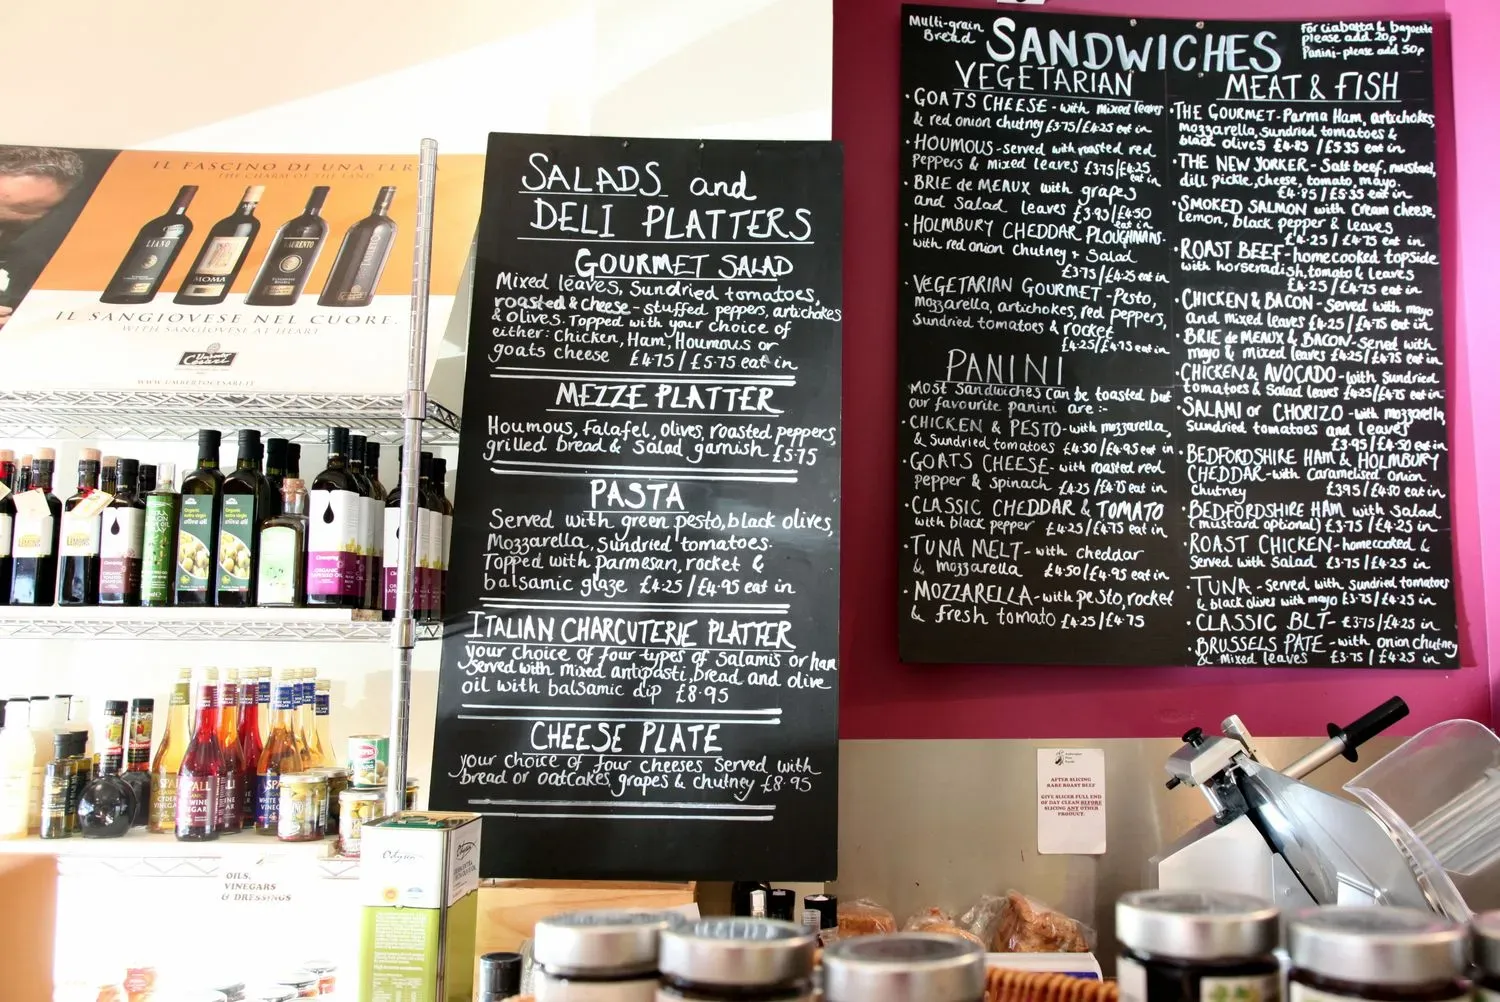 IL FASCINO DI UNA TERRA
THE CHARM OF THE LAND
LIANO
MOMA
LAURENTO
IL SANGIOVESE NEL CUORE.
WITH SANGIOVESE AT HEART
Umberto
Cesari
WWW.UMBERTOCESARI.IT
Organic
extra virgin
olive oil
Organic
extra virgin
olive oil
OILS,
VINEGARS
& DRESSINGS
SALADS and
DELI PLATTERS
GOURMET SALAD
Mixed leaves, Sundried tomatoes,
roasted & cheese-stuffed peppers, artichokes
& olives. Topped with your choice of
either: Chicken, Ham, Houmous or
goats cheese £4.75/£5.75 eat in
MEZZE PLATTER
Houmous, Falafel, Olives, roasted peppers,
grilled bread & Salad garnish £5.75
PASTA
Served with green pesto, black olives,
Mozzarella, Sundried tomatoes.
Topped with parmesan, rocket &
balsamic glaze £4.25/£4.95 eat in
ITALIAN CHARCUTERIE PLATTER
your choice of four types of Salamis or ham
served with mixed antipasti, bread and olive
oil with balsamic dip £8.95
CHEESE PLATE
your choice of four cheeses served with
bread or oatcakes, grapes & chutney £8.95
Multi-grain
Bread
SANDWICHES
For ciabatta & baguette
please add 20p
Panini-please add 50p
VEGETARIAN
• GOATS CHEESE - with mixed leaves
& red onion chutney £3.75/£4.25 eat in
• HOUMOUS-served with roasted red
Peppers & Mixed leaves £3.75/£4.25
eat in
• BRIE de MEAUX with grapes
and Salad leaves £3.95/£4.50
eat in
• HOLMBURY CHEDDAR PLOUGHMANS-
with red onion chutney & Salad
£3.75/£4.25 eat in
• VEGETARIAN GOURMET-Pesto,
Mozzarella, artichokes, red peppers,
Sundried tomatoes & rocket
£4.25/£4.75 eat in
PANINI
Most Sandwiches can be toasted but
our favourite panini are:-
• CHICKEN & PESTO-with mozzarella,
& Sundried tomatoes £4.50/£4.95 eat in
• GOATS CHEESE-with roasted red
pepper & spinach £4.25/£4.75 eat in
• CLASSIC CHEDDAR & TOMATO
with black pepper £4.25/£4.75 eat in
• TUNA MELT- with cheddar
& mozzarella £4.50/£4.95 eat in
• MOZZARELLA-with pesto, rocket
& fresh tomato £4.25/£4.75
MEAT & FISH
• THE GOURMET-Parma Ham, artichokes,
Mozzarella, sundried tomatoes &
black olives £4.85/£5.35 eat in
• THE NEW YORKER- Salt beef, mustard,
dill pickle, cheese, tomato, mayo.
£4.85/£5.35 eat in
• SMOKED SALMON with Cream cheese,
lemon, black pepper & leaves
£4.25/£4.75 eat in
• ROAST BEEF-homecooked topside
with horseradish, tomato & leaves
£4.25/£4.75 eat in
• CHICKEN & BACON- Served with mayo
and mixed leaves £4.25/£4.75 eat in
• BRIE de MEAUX & BACON-Served with
mayo & mixed leaves £4.25/£4.75 eat in
• CHICKEN & AVOCADO-with Sundried
tomatoes & Salad leaves £4.25/£4.75 eat in
• SALAMI or CHORIZO-with mozzarella,
Sundried tomatoes and leaves
£3.95/£4.50 eat in
• BEDFORDSHIRE HAM & HOLMBURY
CHEDDAR-with Caramelised Onion
Chutney £3.95/£4.50 eat in
• BEDFORDSHIRE HAM with Salad
(mustard optional) £3.75/£4.25 in
• ROAST CHICKEN-homecooked &
Served with Salad £3.75/£4.25 in
• TUNA-served with Sundried tomatoes
& black olives with mayo £3.75/£4.25 in
• CLASSIC BLT- £3.75/£4.25 in
• BRUSSELS PATE-with onion chutney
& Mixed leaves £3.75/£4.25 in
AFTER SLICING
RARE ROAST BEEF
GIVE SLICER FULL END
OF DAY CLEAN BEFORE
SLICING ANY OTHER
PRODUCT.